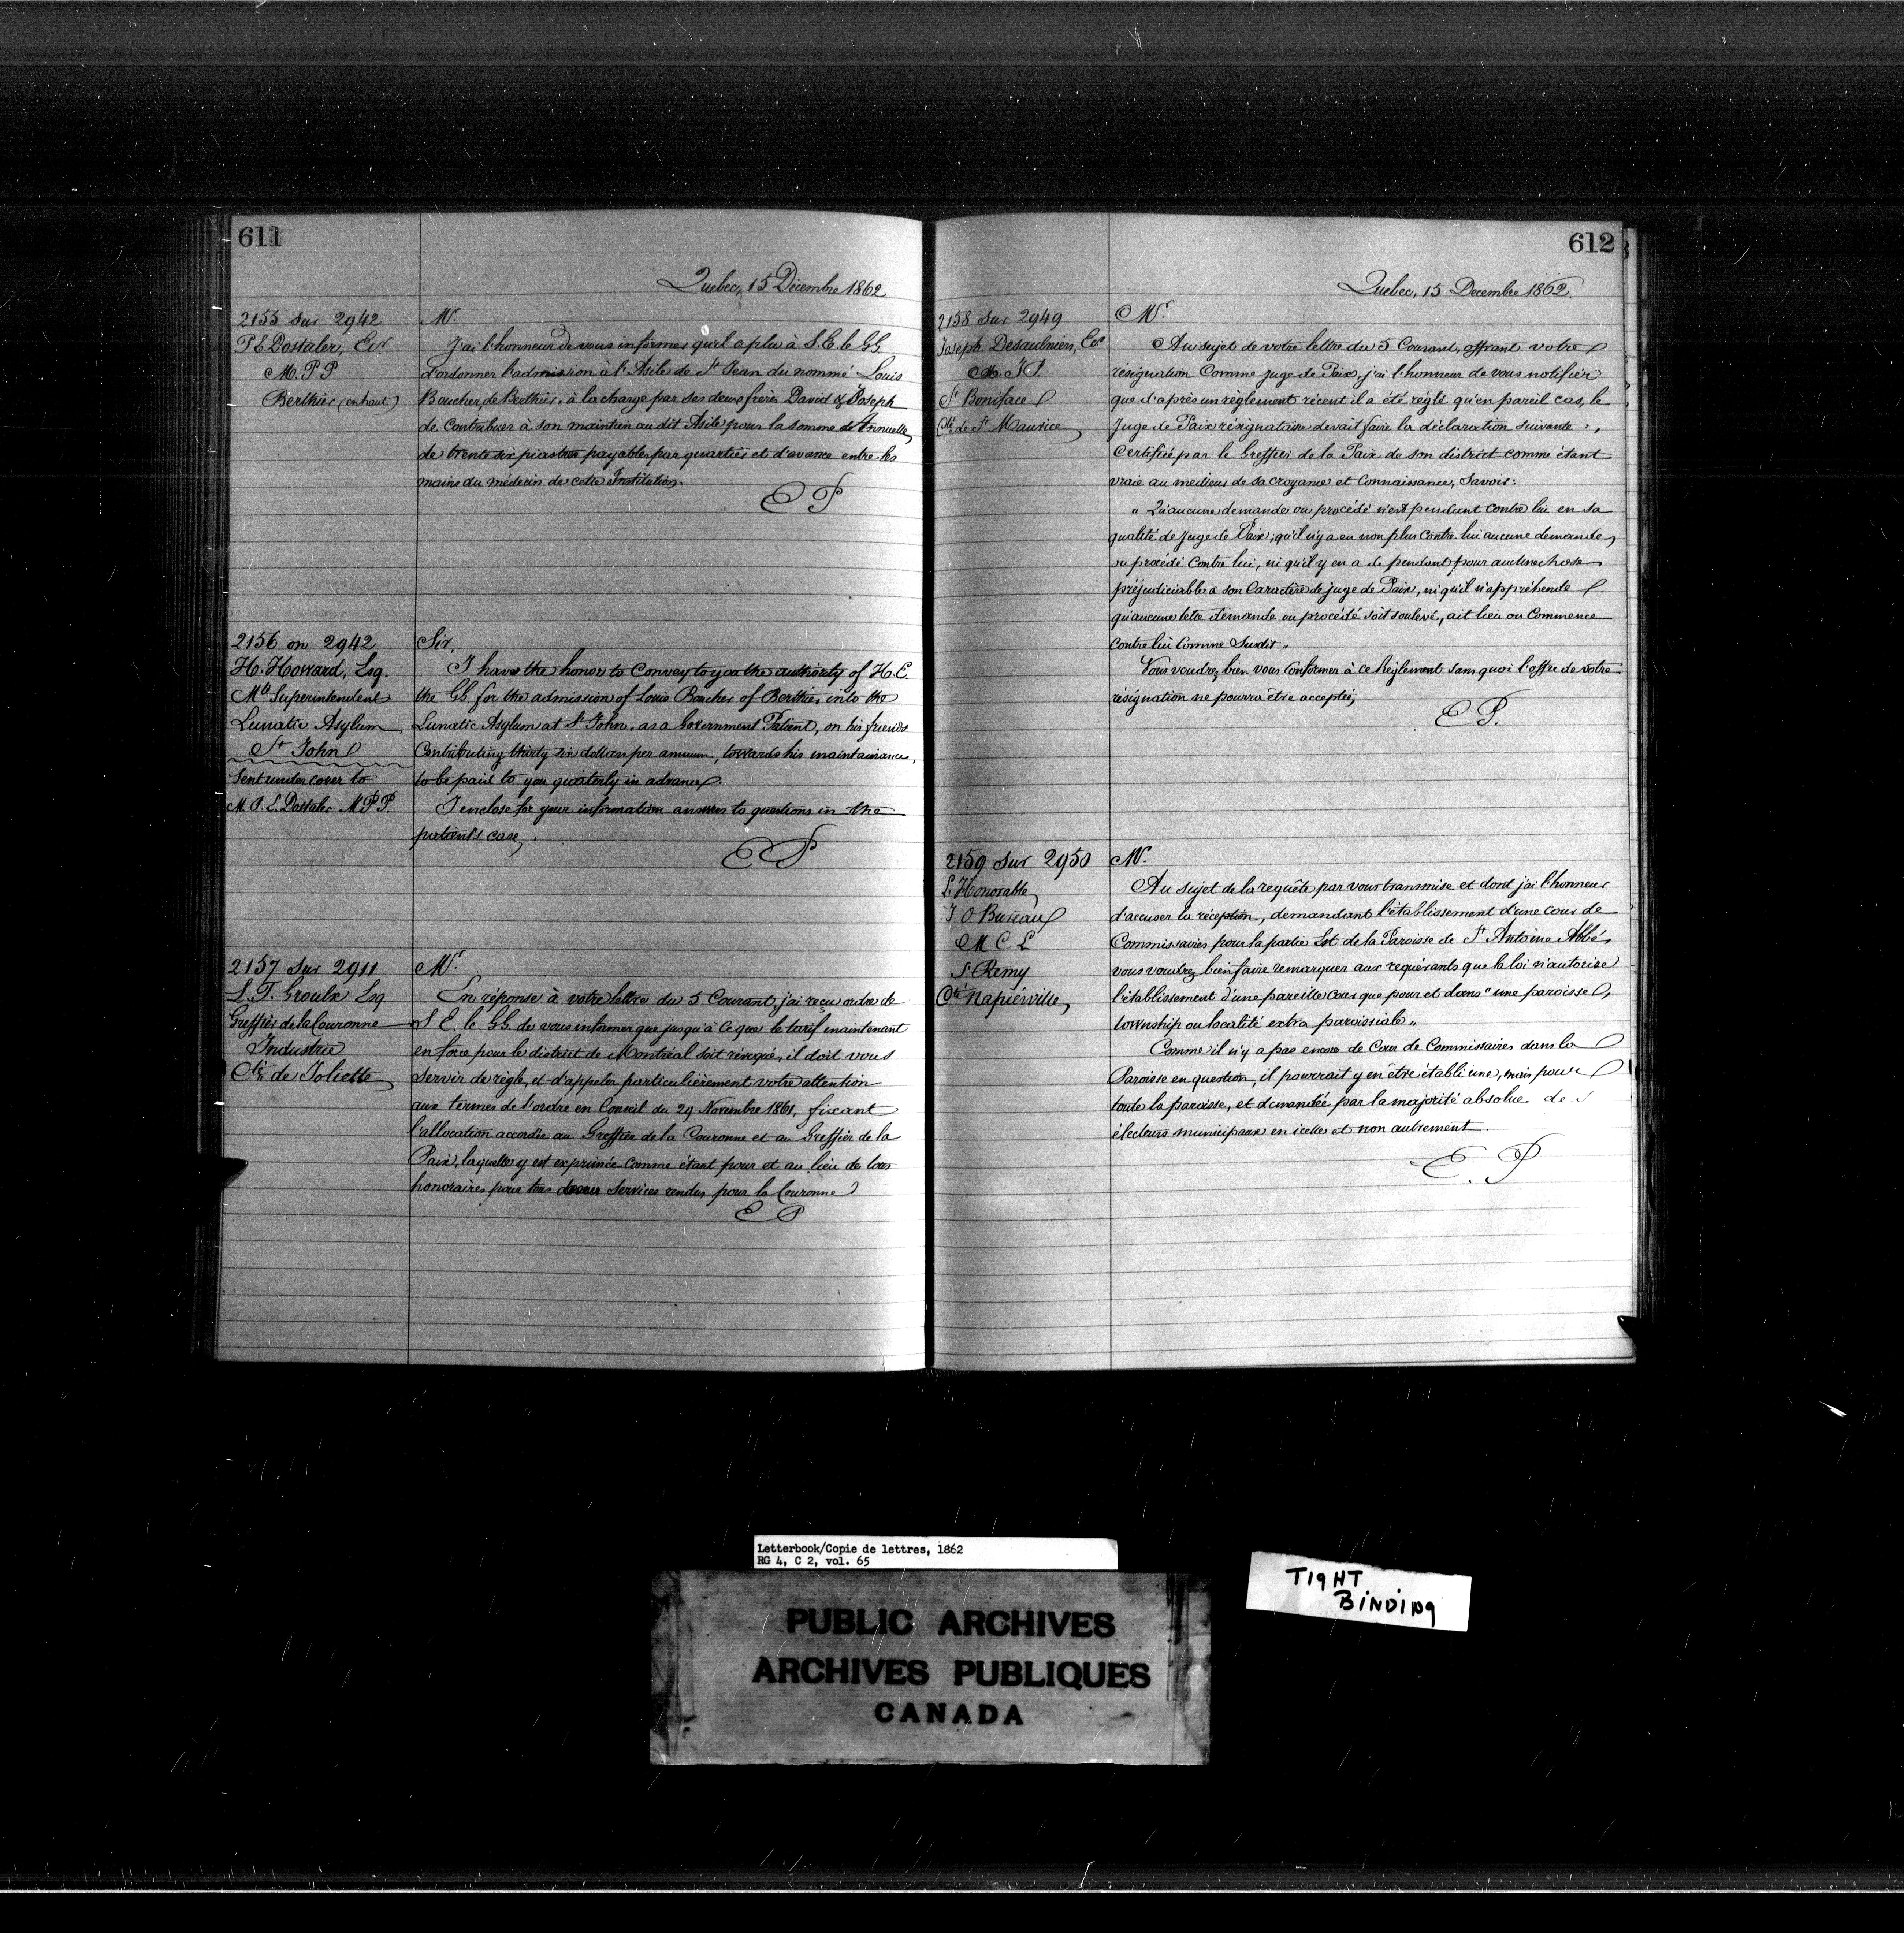 611
Quebec, 15 Décembre 1862
2155 sur 2942
P. E. Dostaler, Ecr
M. P. P
Berthier (en haut)
Mr.
J'ai l'honneur de vous informer qu'il a plu à S. E. le G.G.
d'ordonner l'admission à l'Asile de St Jean du nommé Louis
Boucher, de Berthier, à la charge par ses deux frères David & Joseph
de contribuer à son maintien au dit Asile pour la somme Annuelle
de trente six piastres payables par quartiers et d'avance entre les
mains du médecin de cette Institution.
E P
2156 on 2942
H. Howard, Esq.
Ml Superintendent
Lunatic Asylum
St John
Sent under cover to
M. P. E. Dostaler M P P.
Sir,
I have the honor to Convey to you the authority of H. E.
the GG for the admission of Louis Boucher of Berthier into the
Lunatic Asylum at St John, as a Government Patient, on his friends
Contributing thirty six dollars per annum, towards his maintainance,
to be paid to you quarterly in advance.
I enclose for your information answers to questions in the
patient's case,
E P
2157 sur 2911
L. T. Groulx Esq
Greffier de la Couronne
Industrie
Cté de Joliette
Mr.
En réponse à votre lettre du 5 Courant, j'ai reçu ordre de
S E. le GG. de vous informer que jusqu'à ce que le tarif maintenant
en force pour le district de Montréal soit révoqué, il doit vous
servir de règle, et d'appeler particulièrement votre attention
aux termes de l'ordre en Conseil du 29 Novembre 1861, fixant
l'allocation accordée au Greffier de la Couronne et au Greffier de la
Paix, laquelle y est exprimée comme étant pour et au lieu de tous
honoraires pour tous services rendus pour la Couronne
E P
612
Quebec, 15 Decembre 1862.
2158 sur 2949
Joseph Desaulniers, Ecr
J. P.
St Boniface
Cté de St Maurice
Mr.
Au sujet de votre lettre du 5 Courant, offrant votre
résignation Comme juge de Paix, j'ai l'honneur de vous notifier
que d'après un règlement récent il a été réglé qu'en pareil cas, le
Juge de Paix résignataire devait faire la déclaration suivante,
Certifiée par le Greffier de la Paix de son district comme étant
vraie au meilleur de sa croyance et Connaissance, Savoir:
" Qu'aucune demande ou procédé n'est pendant contre lui en sa
qualité de Juge de Paix; qu'il n'y a eu non plus contre lui aucune demande,
ou procédé contre lui, ni qu'il y en a de pendant pour aucune chose
préjudiciable à son Caractère de juge de Paix, ni qu'il n'appréhende
qu'aucune telle demande ou procédé soit soulevé, ait lieu ou Commence
contre lui Comme Susdit.
Vous voudrez bien vous conformer à ce Règlement sans quoi l'offre de votre
résignation ne pourra être acceptée,
E P.
2159 sur 2950
L'Honorable
J O Bureau
M C L
St Remy
Cté Napierville,
Mr.
Au sujet de la requête par vous transmise et dont j'ai l'honneur
d'accuser la réception, demandant l'établissement d'une cour de
Commissaires pour la partie Est de la Paroisse de St Antoine Abbé,
vous voudrez bien faire remarquer aux requérants que la loi n'autorise
l'établissement d'une pareille cour que pour et dans "une paroisse,
township ou localité extra paroissiale"
Comme il n'y a pas encore de Cour de Commissaires dans la
Paroisse en question, il pourrait y en être établi une, mais pour
toute la paroisse, et demandée par la majorité absolue des
électeurs municipaux en icelle et non autrement.
E. P
Letterbook/Copie de lettres, 1862
RG 4, C 2, vol. 65
TIGHT
BINDING
PUBLIC ARCHIVES
ARCHIVES PUBLIQUES
CANADA